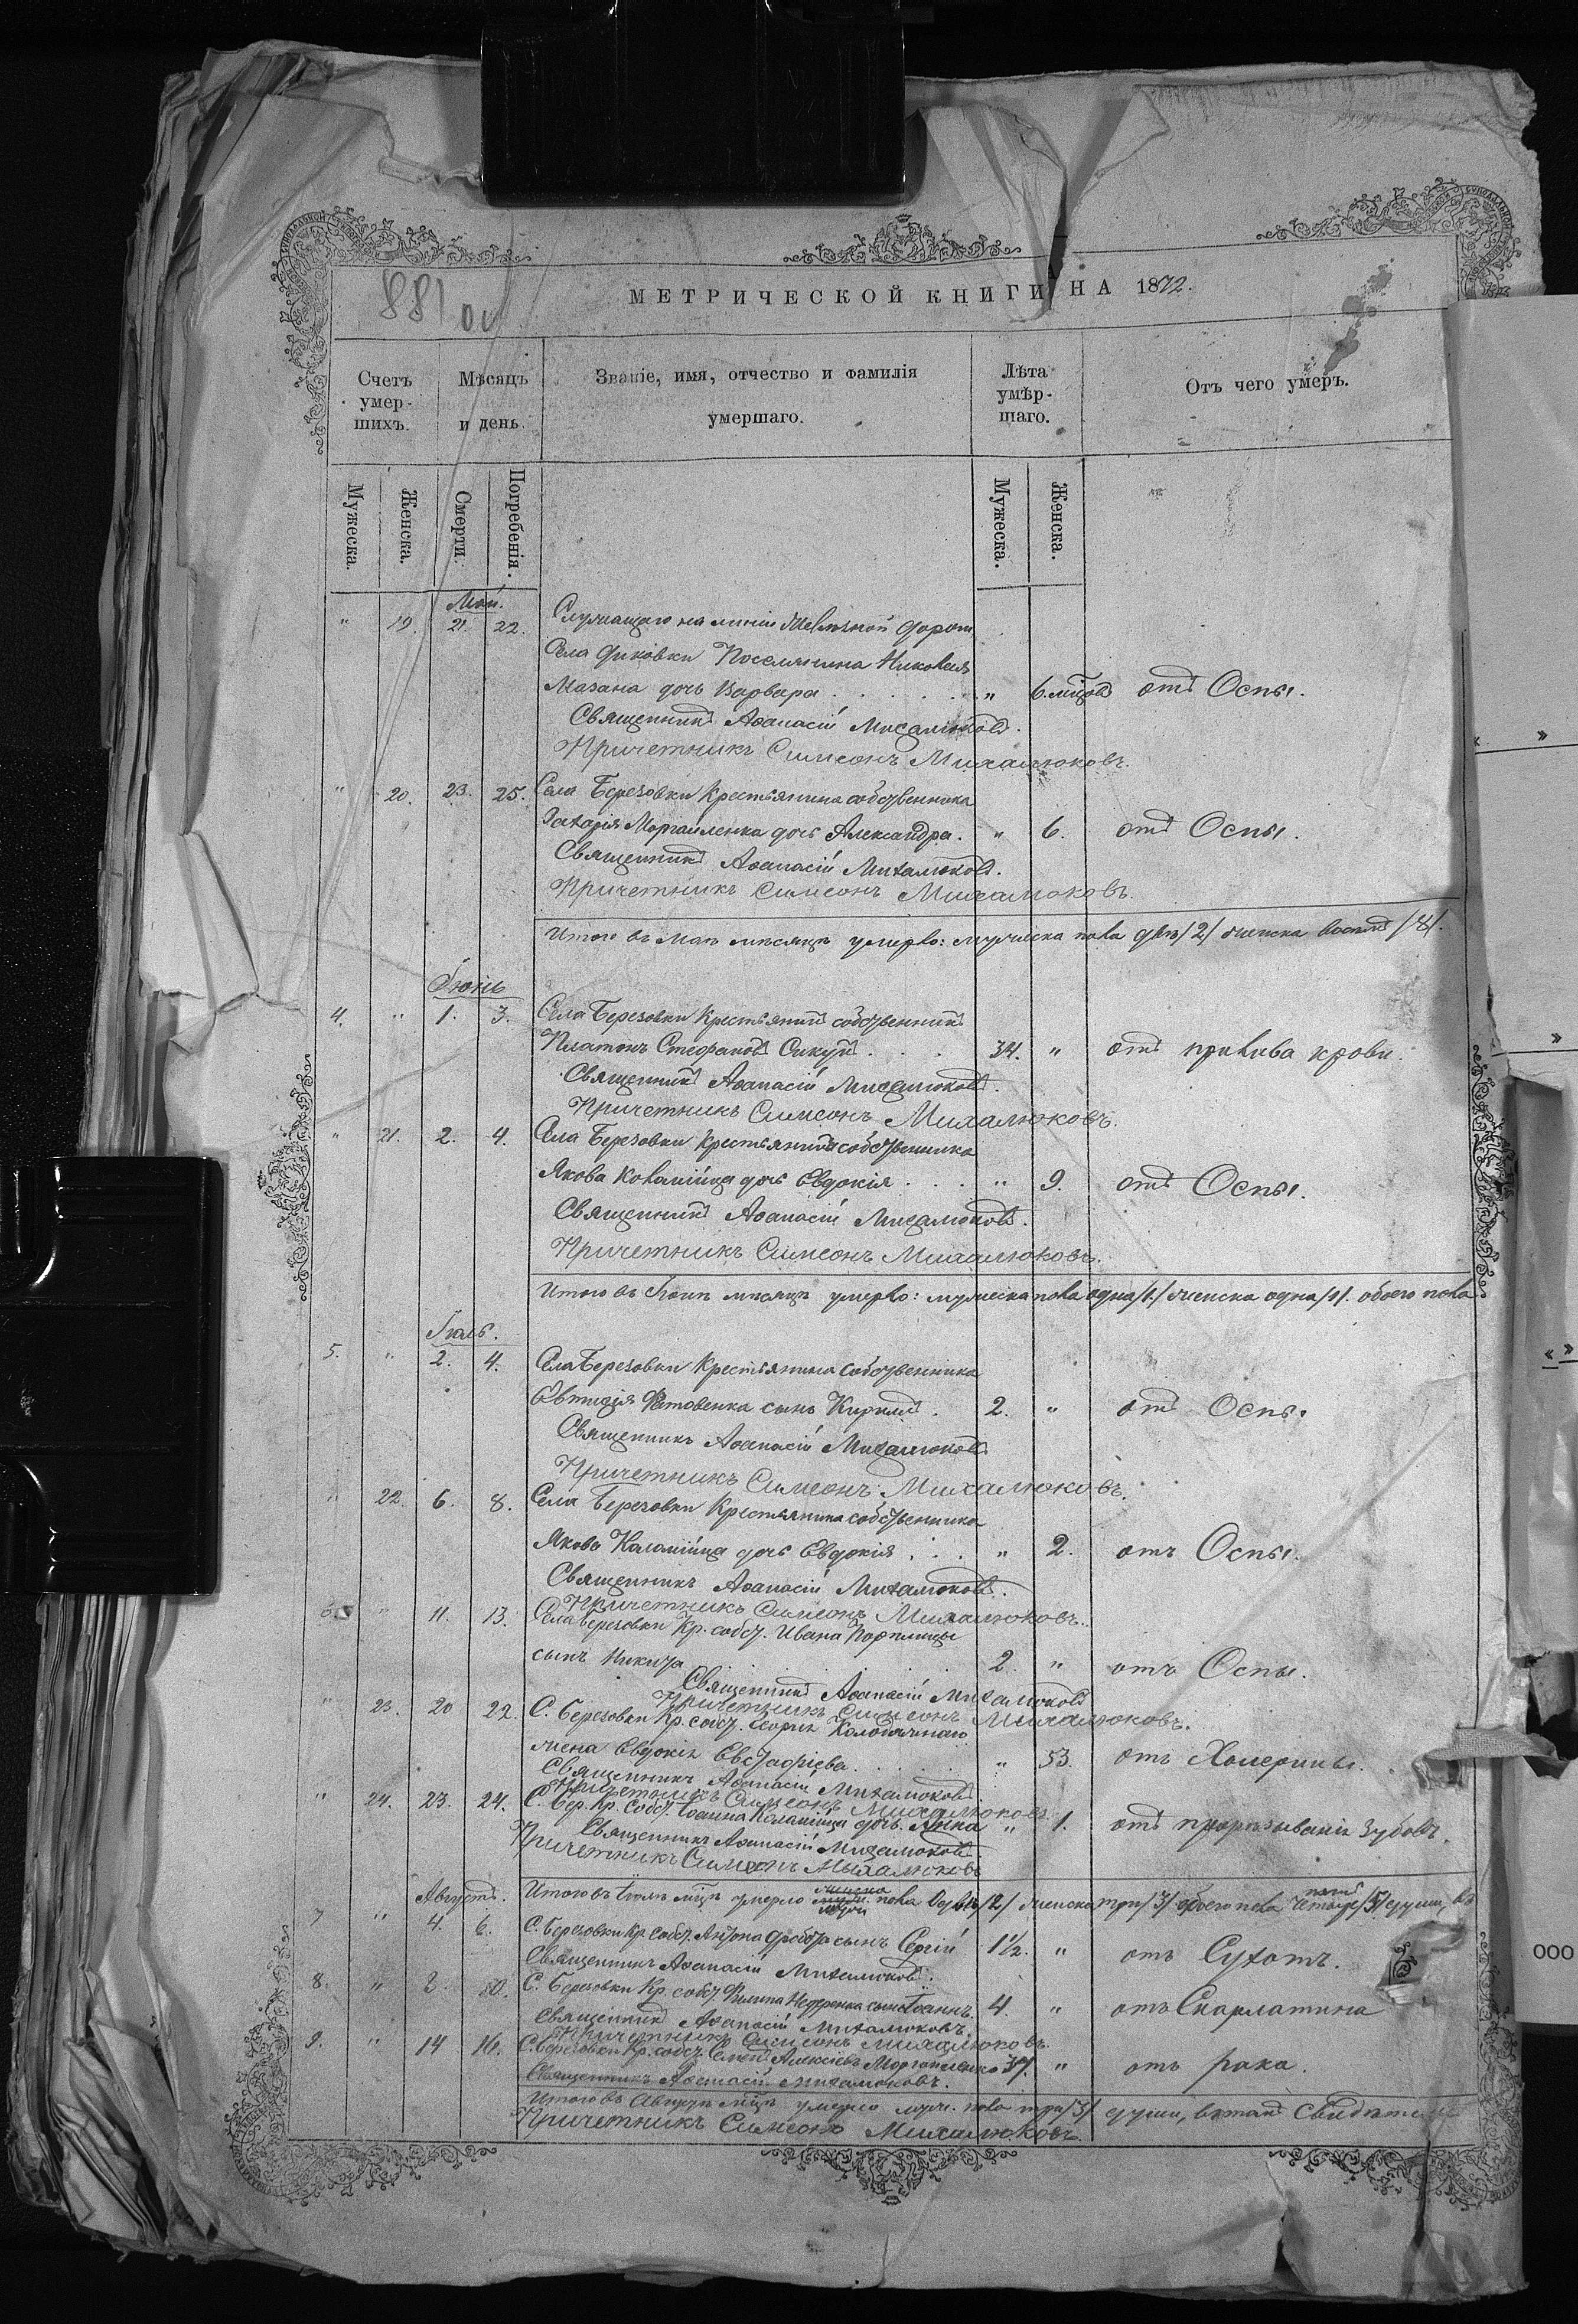 881 об
МЕТРИЧЕСКОЙ КНИГИ НА 1872.
Счетъ умер- шихъ.
Мѣсяцъ и день.
Званіе, имя, отчество и фамилія умершаго.
Лѣта умѣр- шаго.
Отъ чего умеръ.
Мужеска.
Женска.
Смерти.
Погребенія.
Мужеска.
Женска.
Май.
" 19. 21. 22. Служащаго на линіи желѣзной дороги
села Поселянина Николая
Мазана дочь Варвара " 6. мѣцовъ отъ Оспы.
Священникъ Аѳанасій Михалюковъ.
Причетникъ Симеонъ Михалюковъ.
" 20. 23. 25. Села Березовки Крестьянина собственника
Захарія дочь Александра. " 6. отъ Оспы.
Священникъ Аѳанасій Михалюковъ.
Причетникъ Симеонъ Михалюковъ.
Итого въ Маѣ мѣсяцѣ умерло: мужеска пола двѣ /2/ женска восемь /8/.
Іюнь
4. " 1. 3. Села Березовки Крестьянинъ собственникъ
Платонъ Стефановъ Сикунъ 34. " отъ прилива крови.
Священникъ Аѳанасій Михалюковъ.
Причетникъ Симеонъ Михалюковъ.
" 21. 2. 4. Села Березовки Крестьянина собственника
Якова дочь Евдокія " 9. отъ Оспы.
Священникъ Аѳанасій Михалюковъ.
Причетникъ Симеонъ Михалюковъ.
Итого въ Іюнѣ мѣсяцѣ умерло: мужеска пола одна /1/ женска одна /1/. обоего пола
Іюль.
5. " 2. 4. Села Березовки Крестьянина собственника
сынъ Кирилъ. 2. " отъ Оспы.
Священникъ Аѳанасій Михалюковъ
Причетникъ Симеонъ Михалюковъ.
" 22. 6. 8. Села Березовки Крестьянина собственника
Якова Каламійца дочь Евдокія " 2. отъ Оспы.
Священникъ Аѳанасій Михалюковъ.
Причетникъ Симеонъ Михалюковъ.
6. " 11. 13. Села Березовки Кр. собст. Ивана
сынъ Никита 2. " отъ Оспы.
Священникъ Аѳанасій Михалюковъ
Причетникъ Симеонъ Михалюковъ.
" 23. 20 22. С. Березовки Кр. собст. Колодяжнаго
жена Евдокія Евстафіева. " 53. отъ Холерины.
Священникъ Аѳанасій Михалюковъ
Причетникъ Симеонъ Михалюковъ
" 24. 23. 24. С. Бер. Кр. собст. Іоанна Каламійца дочь Анна " 1. отъ прорѣзыванія зубовъ.
Священникъ Аѳанасій Михалюковъ.
Причетникъ Симеонъ Михалюковъ
Итого въ Іюлѣ мѣцѣ умерло пола /2/ женска три /3/ обоего пола пять /5/ душъ, въ
Августъ.
7 " 4. 6. С. Березовки Кр. собст. Антона сынъ Сергій 1½. " отъ Сухотъ.
Священникъ Аѳанасій Михалюковъ.
8. " 8. 10. С. Березовки Кр. собст. Филипа сынъ Іоаннъ. 4. " отъ Скарлатина
Священникъ Аѳанасій Михалюковъ.
Причетникъ Симеонъ Михалюковъ.
9. " 14 16. С. Березовки Кр. собст. Алексіевъ 37. " отъ рака.
Священникъ Аѳанасій Михалюковъ.
Итого въ Августѣ мѣцѣ умерло муж. пола три /3/ души, въ томъ
Причетникъ Симеонъ Михалюковъ.
000